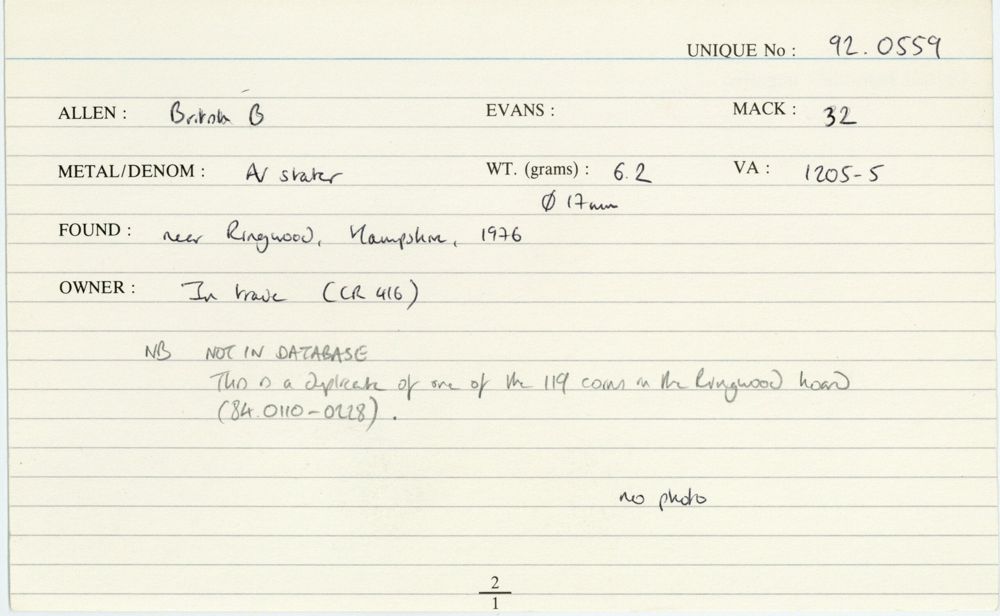 UNIQUE No : 92.0559
ALLEN : British B EVANS : MACK : 32
METAL/DENOM : AV stater WT. (grams) : 6.2 VA : 1205-5
Ø 17mm
FOUND : near Ringwood, Hampshire, 1976
OWNER : In trade (CR 416)
NB NOT IN DATABASE
This is a duplicate of one of the 119 coins in the Ringwood hoard
(84.0110-0228).
no photo
2
1